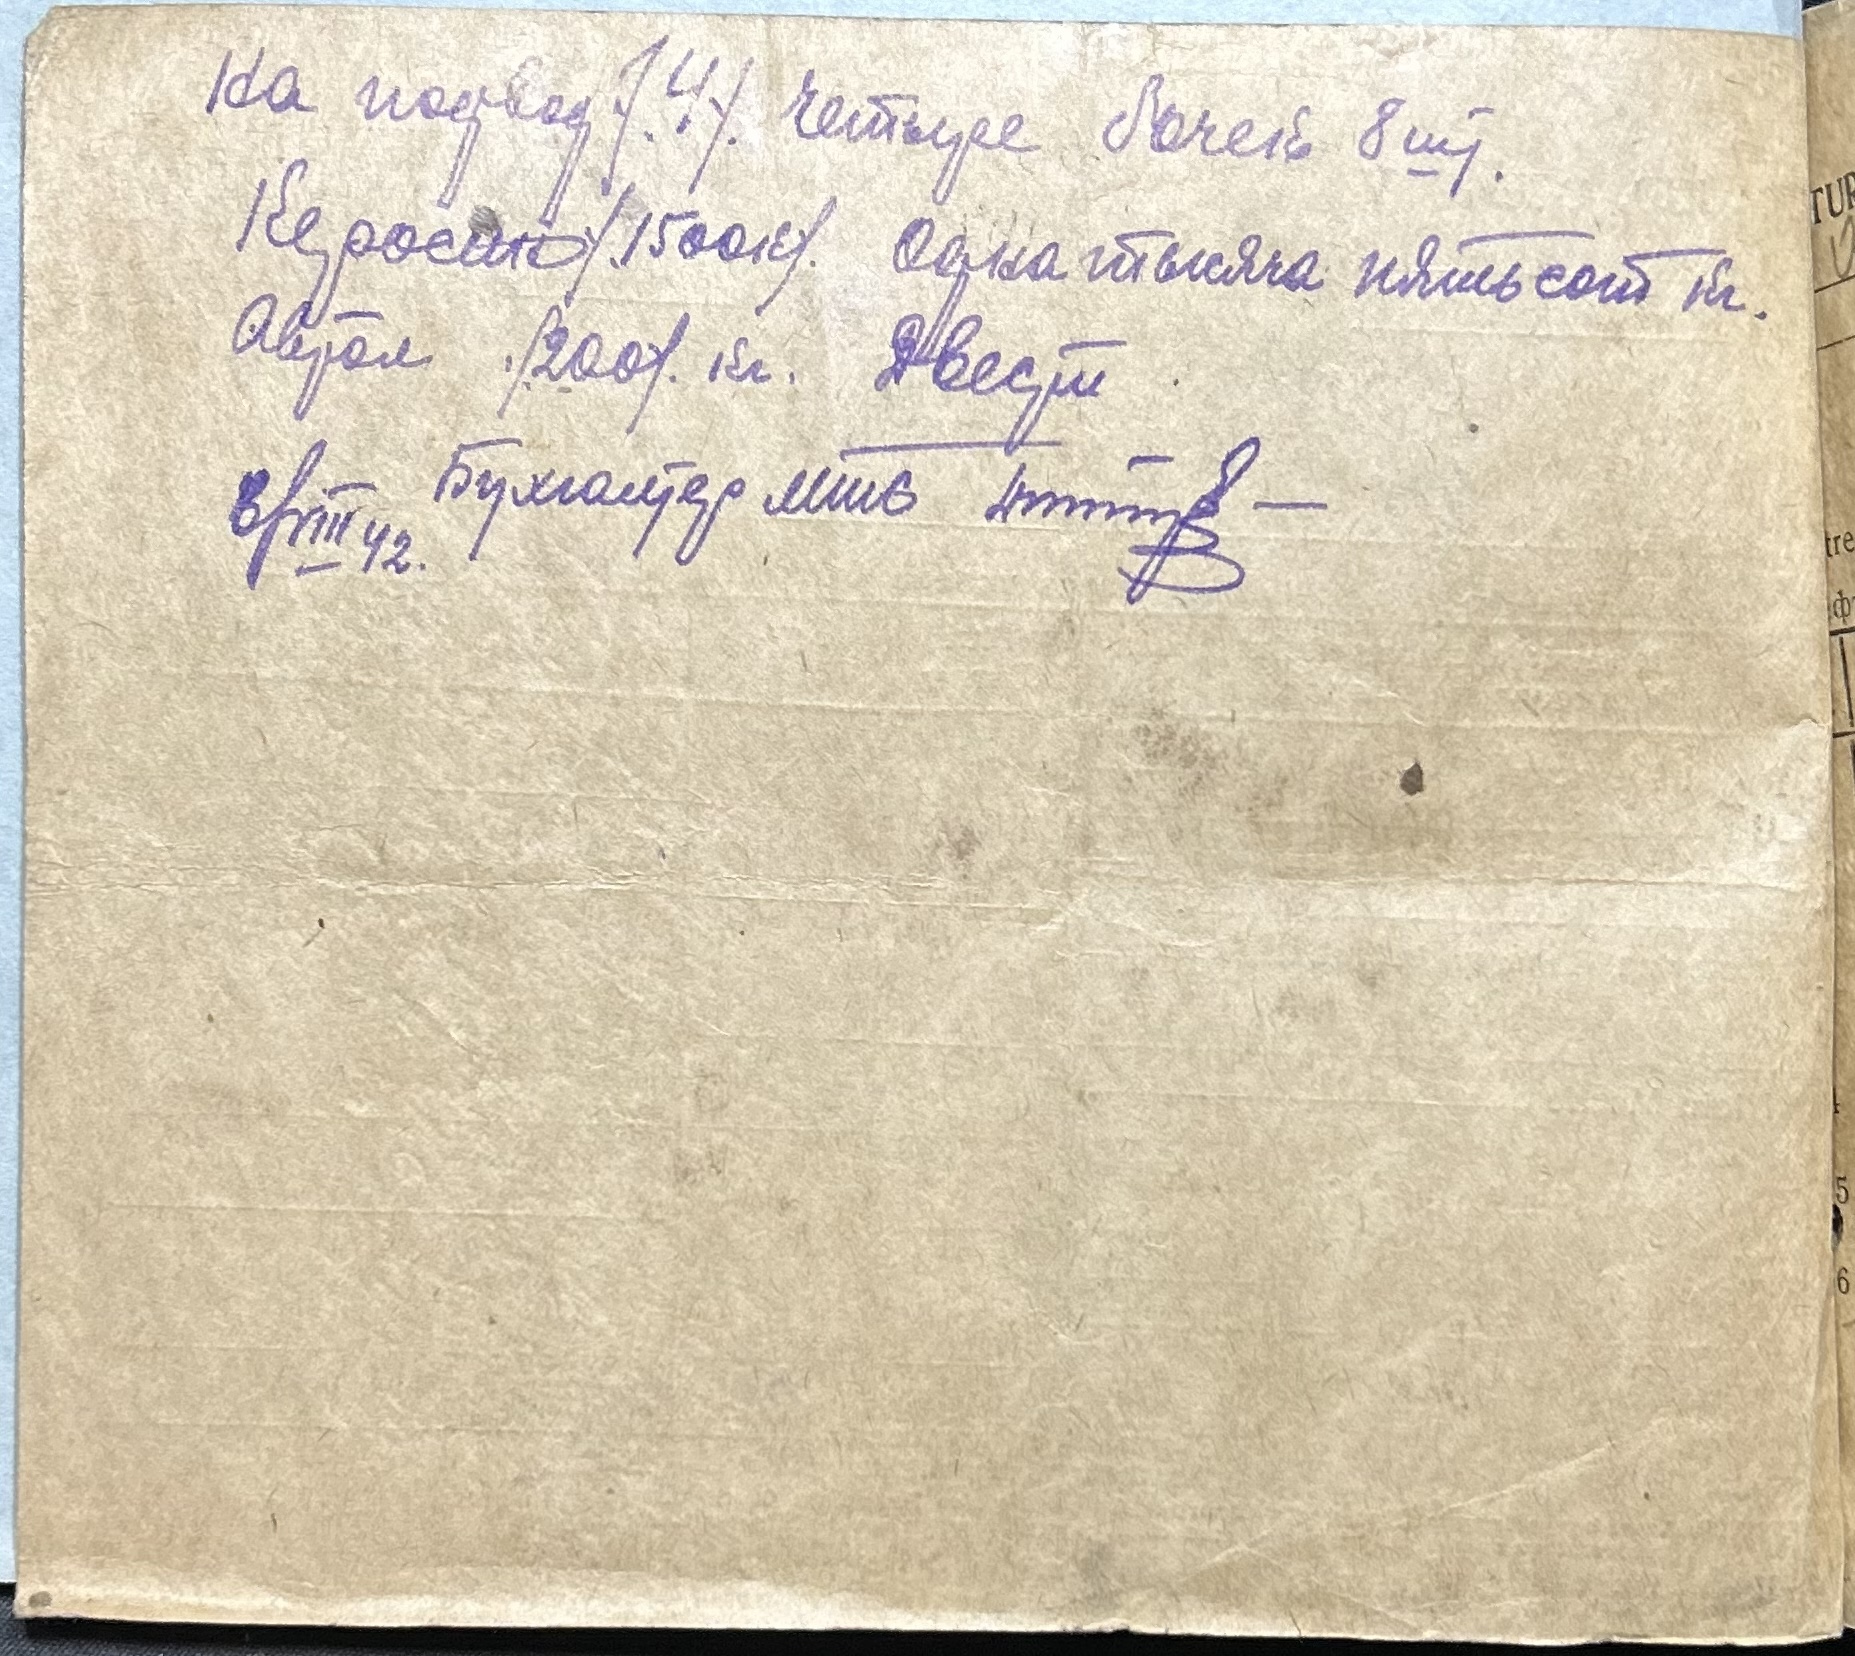 На подвод /.4/. четыре бочек 8 шт.
Керосин /.1500к/. Одна тысяча пятьсот кг.
Автол ./200/. кг. Двест
8/VIII 42. Бухгалтер
TUR
tre
5
6